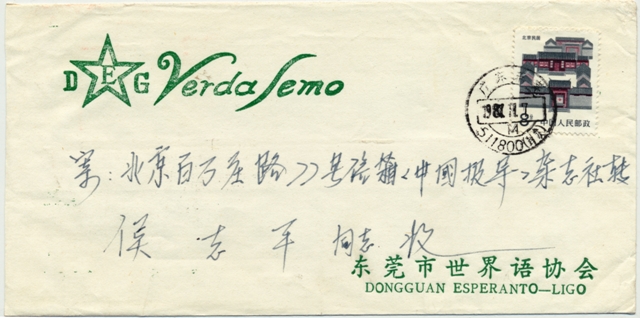 D E G Verda Semo
北京民居
中国人民邮政
广东
511800
寄:北京百万庄路22号信箱《中國报导》杂志社转
侯志平 同志 收
东莞市世界语协会
DONGGUAN ESPERANTO—LIGO